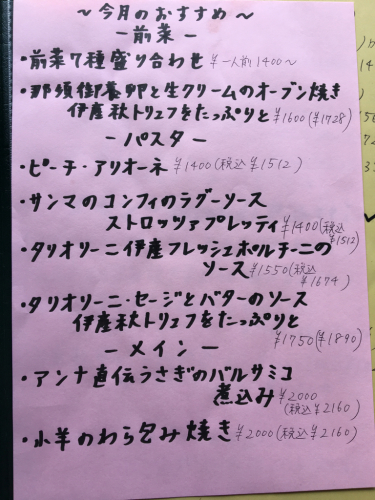 ～今月のおすすめ～
ー前菜ー
・前菜7種盛り合わせ ¥一人前1400～
・那須御養卵と生クリームのオーブン焼き
伊産秋トリュフをたっぷりと ¥1600(¥1728)
ーパスターー
・ピーチ・アリオーネ ¥1400(税込¥1512)
・サンマのコンフィのラグーソース
ストロッツァプレッティ ¥1400(税込
¥1512)
・タリオリーニ伊産フレッシュポルチーニの
ソース ¥1550(税込
¥1674)
・タリオリーニ・セージとバターのソース
伊産秋トリュフをたっぷりと
¥1750(¥1890)
ーメインー
・アンナ直伝うさぎのバルサミコ
煮込み ¥2000
(税込¥2160)
・小羊のわら包み焼き ¥2000(税込¥2160)